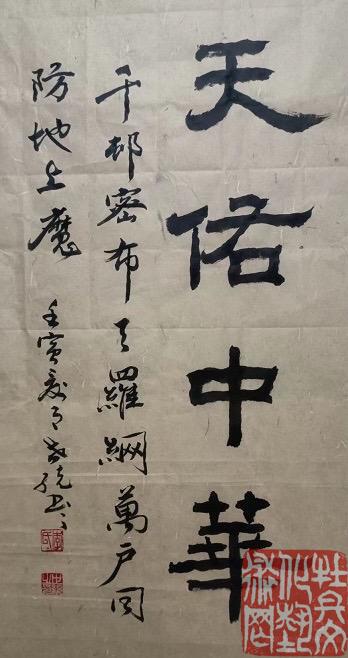 天佑中華
千邨密布天羅網萬户同
防地上魔
壬寅